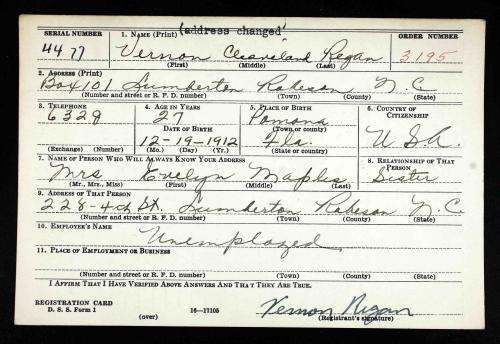 (address changed)
SERIAL NUMBER 1. NAME (Print) ORDER NUMBER
4477 Vernon Cleaveland Regan 3195
(First) (Middle) (Last)
2. ADDRESS (Print)
Box 101 Lumberton Robeson N.C.
(Number and street or R. F. D. number) (Town) (County) (State)
3. TELEPHONE 4. AGE IN YEARS 5. PLACE OF BIRTH 6. COUNTRY OF CITIZENSHIP
6329 27 Pomona
DATE OF BIRTH (Town or county)
12-19-1912 Fla. U.S.A.
(Exchange) (Number) (Mo.) (Day) (Yr.) (State or country)
7. NAME OF PERSON WHO WILL ALWAYS KNOW YOUR ADDRESS 8. RELATIONSHIP OF THAT PERSON
Mrs Evelyn Maples Sister
(Mr., Mrs., Miss) (First) (Middle) (Last)
9. ADDRESS OF THAT PERSON
228-4th St. Lumberton Robeson N.C.
(Number and street or R. F. D. number) (Town) (County) (State)
10. EMPLOYER'S NAME
Unemployed
11. PLACE OF EMPLOYMENT OR BUSINESS
(Number and street or R. F. D. number) (Town) (County) (State)
I AFFIRM THAT I HAVE VERIFIED ABOVE ANSWERS AND THAT THEY ARE TRUE.
REGISTRATION CARD
D. S. S. Form 1 (over) 16-17105 Vernon Regan
(Registrant's signature)